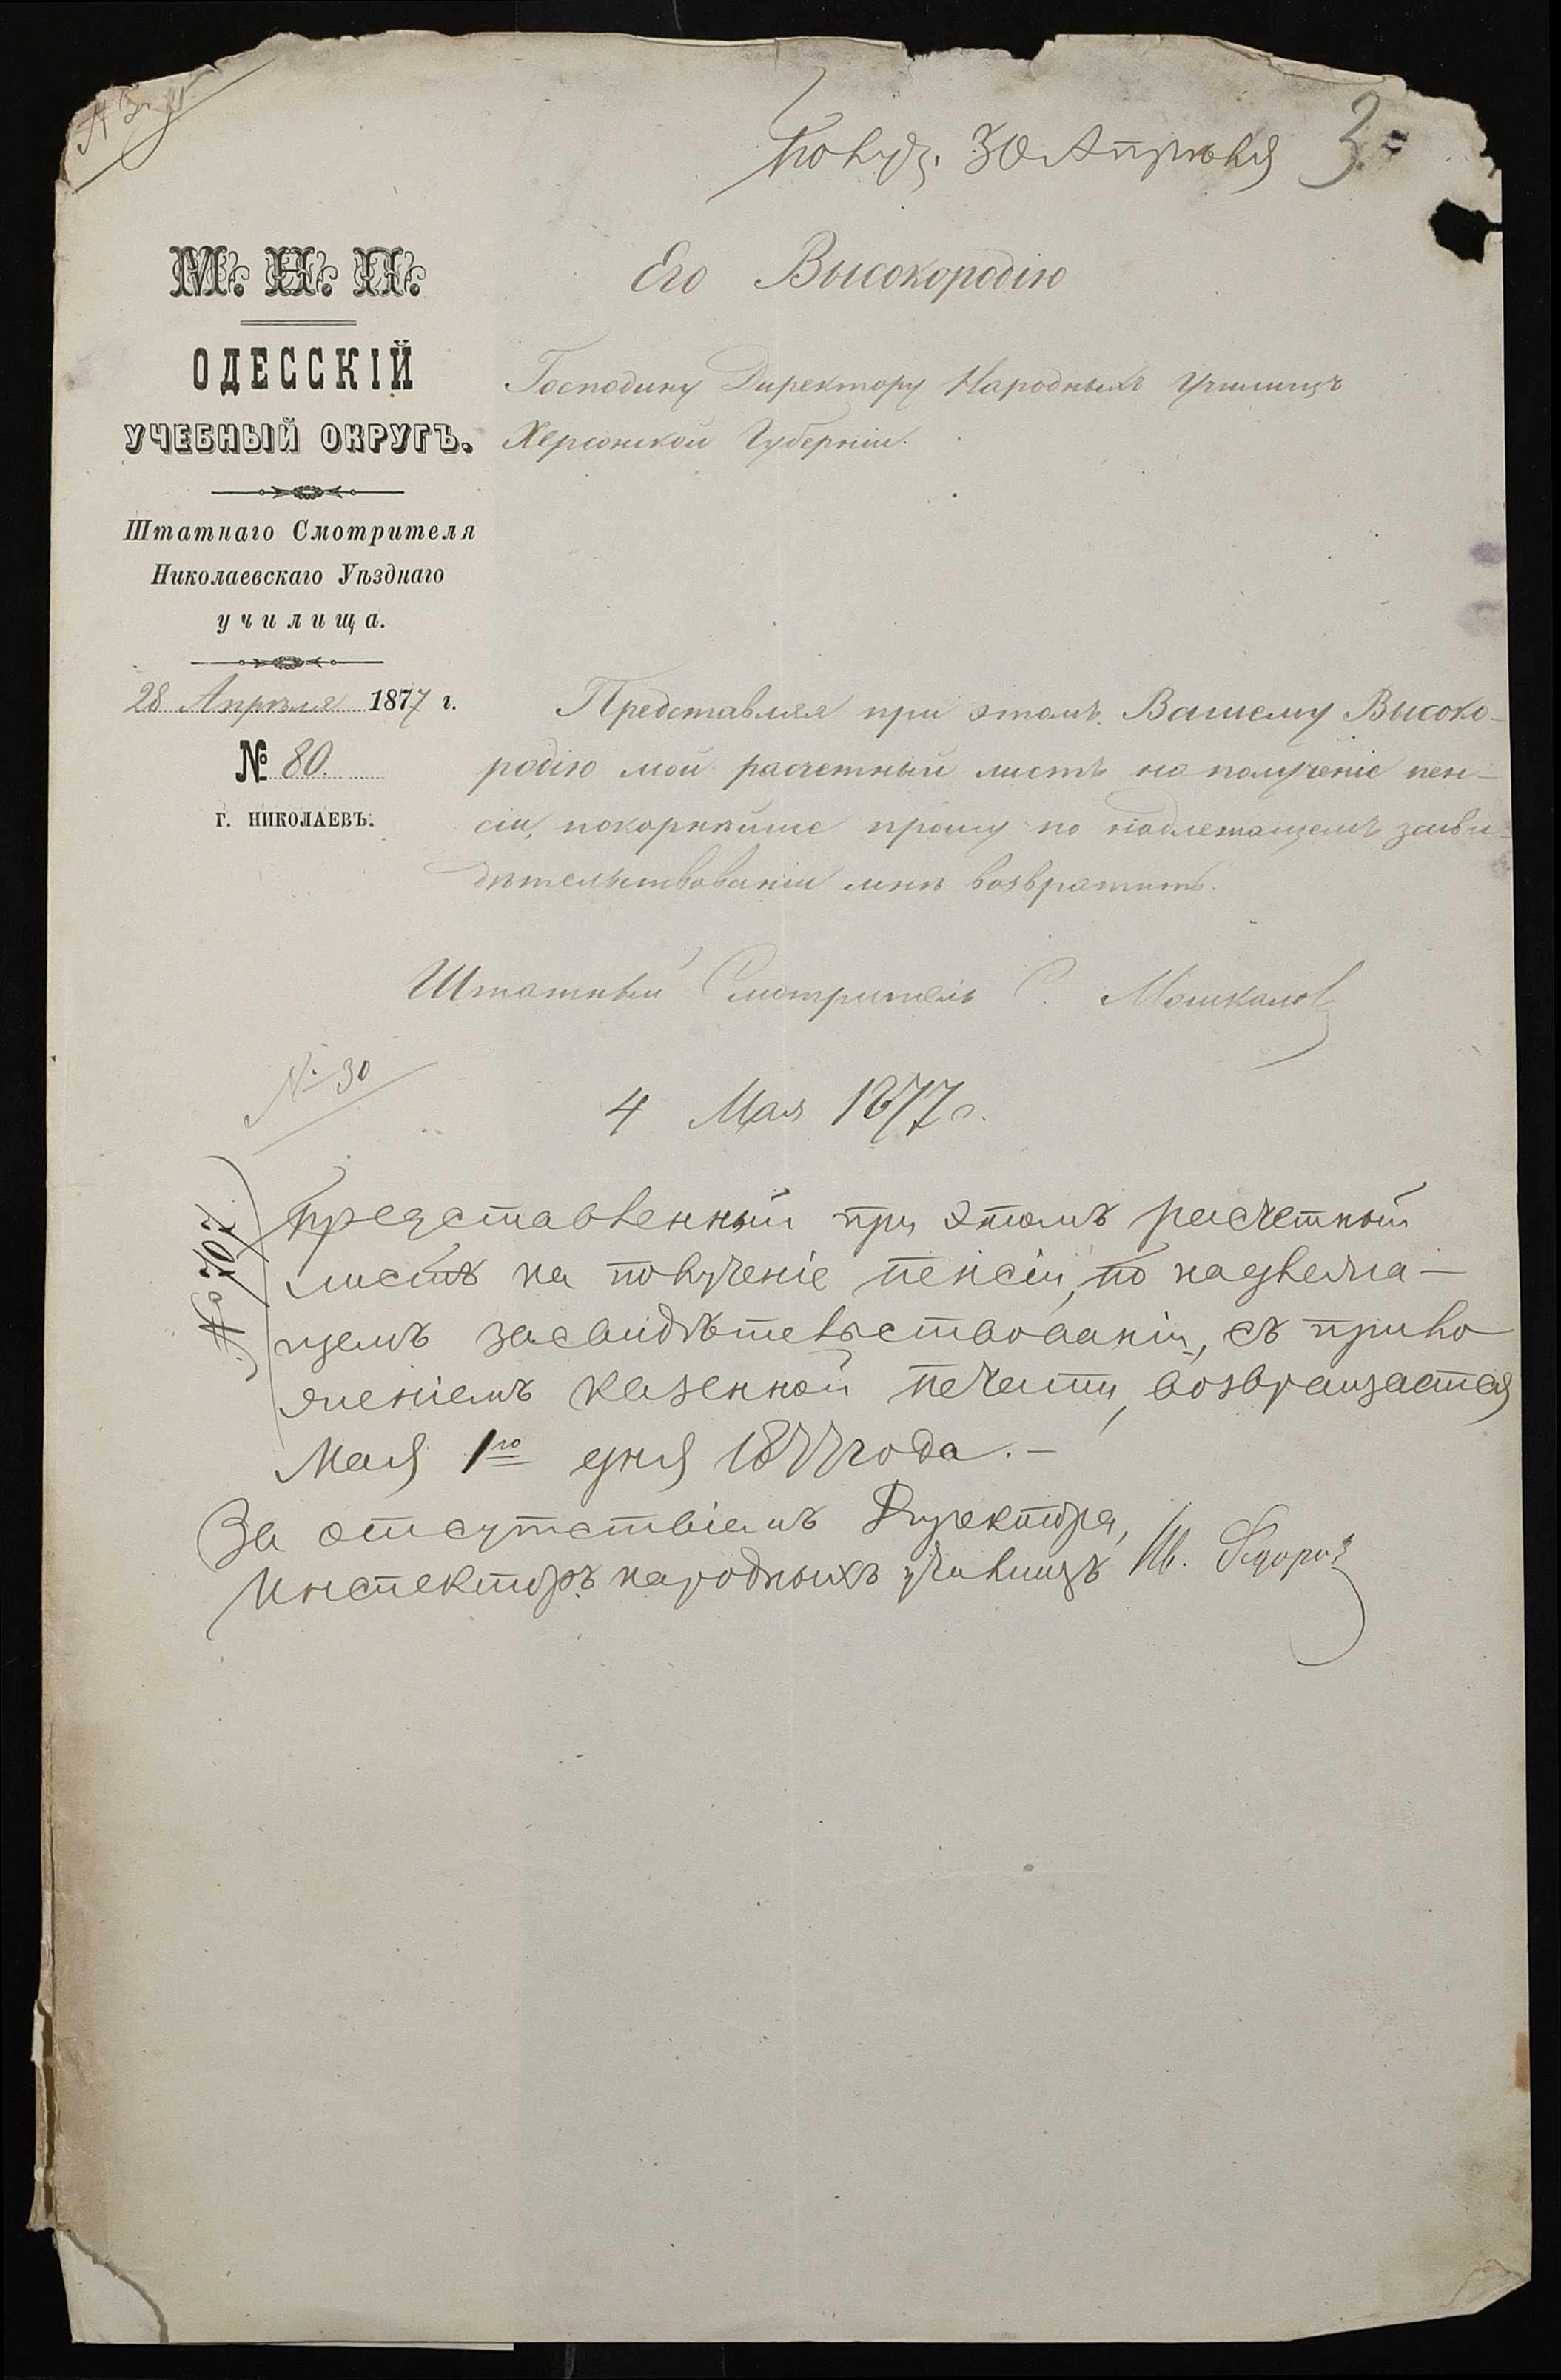 Получ. 30 Апрѣля 3
М. Н. П.
ОДЕССКІЙ
УЧЕБНЫЙ ОКРУГЪ.
Штатнаго Смотрителя
Николаевскаго Уѣзднаго
училища.
28 Апрѣля 1877 г.
№ 80.
Г. НИКОЛАЕВЪ.
Его Высокородію
Господину Директору Народныхъ Училищъ
Херсонской Губерніи.
Представляя при этомъ Вашему Высоко-
родію мой расчетный листъ на полученіе пен-
сіи, покорнѣйше прошу по надлежащемъ засви-
дѣтельствованіи мнѣ возвратить.
Штатный Смотритель С.
№ 30
4 Мая 1877 г.
№ 707
Представленный при этомъ расчетный
листъ на полученіе пенсіи, по надлежа-
щемъ засвидѣтельствованіи, съ прило
женіемъ казенной печати, возвращается
Мая 1го дня 1877 года.-
За отсутствіемъ Директора,
Инспекторъ народныхъ училищъ Ив.